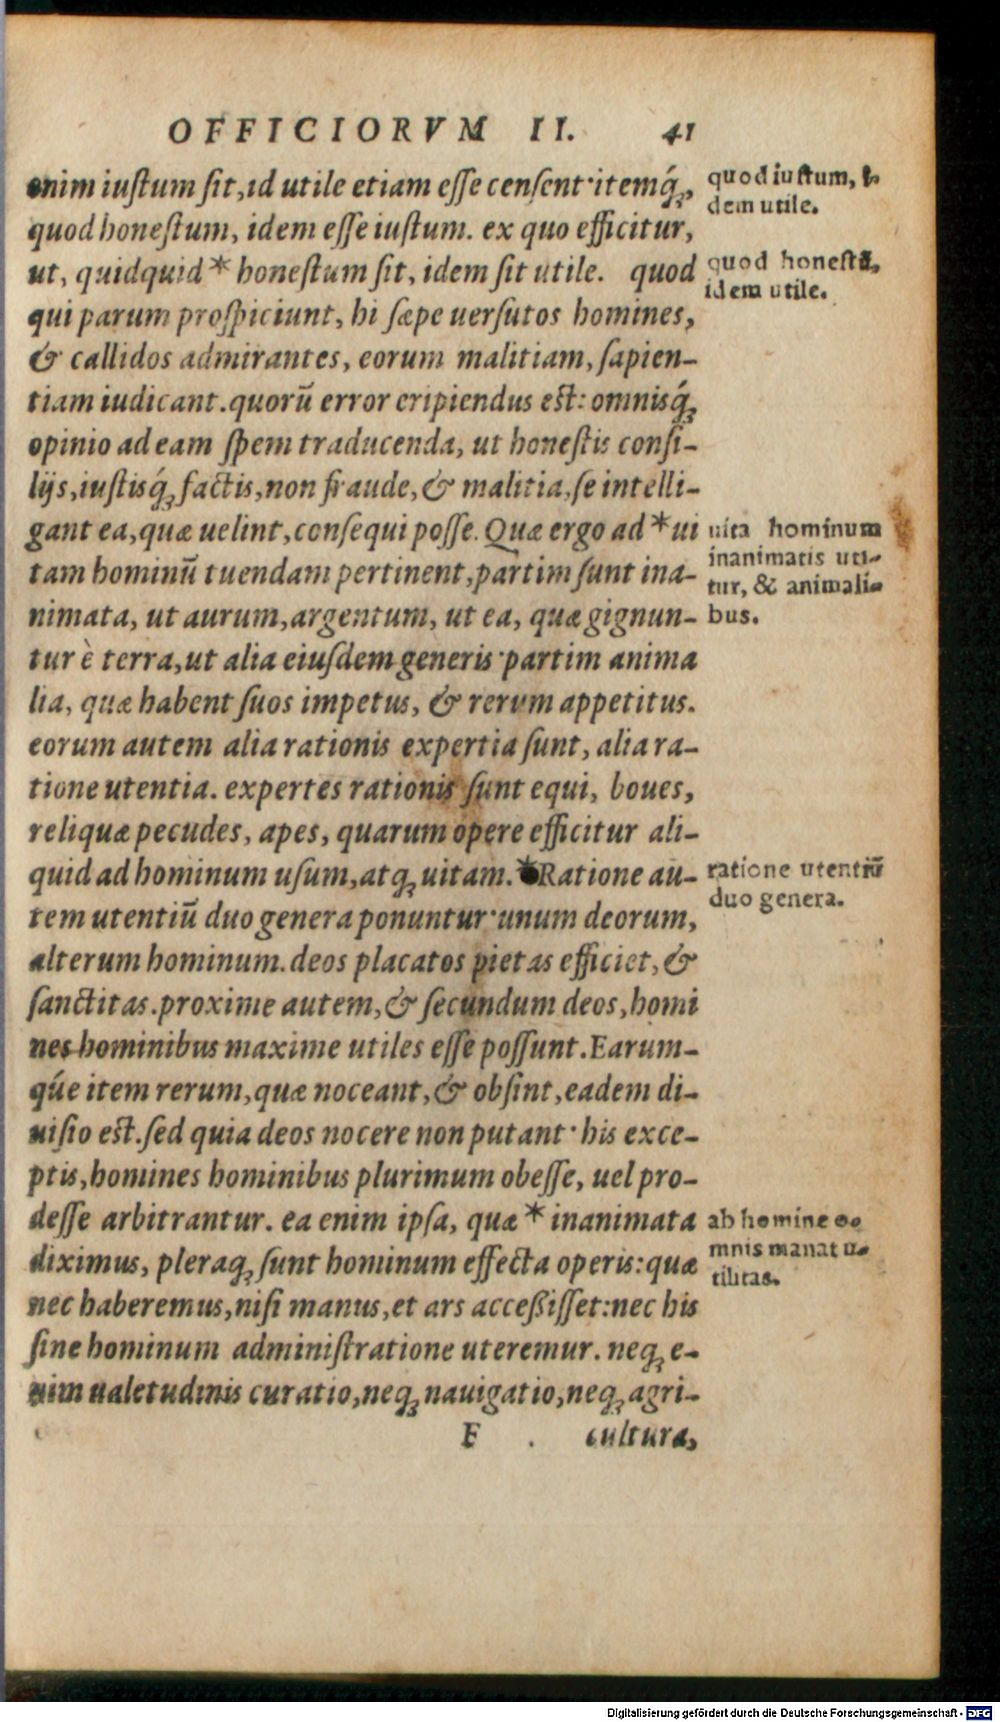 OFFICIORVM II. 41
enim iustum sit, id utile etiam esse censent·itemq́;,
quod honestum, idem esse iustum. ex quo efficitur,
ut, quidquid * honestum sit, idem sit utile. quod
qui parum prospiciunt, hi sæpe uersutos homines,
& callidos admirantes, eorum malitiam, sapien-
tiam iudicant. quorũ error eripiendus est: omnisq́;
opinio ad eam spem traducenda, ut honestis consi-
lijs, iustisq́; factis, non fraude, & malitia, se intelli-
gant ea, quæ uelint, consequi posse. Quæ ergo ad * ui
tam hominũ tuendam pertinent, partim sunt ina-
nimata, ut aurum, argentum, ut ea, quæ gignun-
tur è terra, ut alia eiusdem generis·partim anima
lia, quæ habent suos impetus, & rerum appetitus.
eorum autem alia rationis expertia sunt, alia ra-
tione utentia. expertes rationis sunt equi, boues,
reliquæ pecudes, apes, quarum opere efficitur ali-
quid ad hominum usum, atq; uitam. * Ratione au-
tem utentiũ duo genera ponuntur·unum deorum,
alterum hominum. deos placatos pietas efficiet, &
sanctitas. proxime autem, & secundum deos, homi
nes hominibus maxime utiles esse possunt. Earum-
q́ue item rerum, quæ noceant, & obsint, eadem di-
uisio est. sed quia deos nocere non putant· his exce-
ptis, homines hominibus plurimum obesse, uel pro-
desse arbitrantur. ea enim ipsa, quæ * inanimata
diximus, pleraq; sunt hominum effecta operis: quæ
nec haberemus, nisi manus, et ars accessisset: nec his
sine hominum administratione uteremur. neq; e-
nim ualetudinis curatio, neq; nauigatio, neq; agri-
F cultura,
quod iustum, i-
dem utile.
quod honestũ,
idem utile.
uita hominum
inanimatis uti-
tur, & animali-
bus.
ratione utentiũ
duo genera.
ab homine o-
mnis manat u-
tilitas.
Digitalisierung gefördert durch die Deutsche Forschungsgemeinschaft - DFG